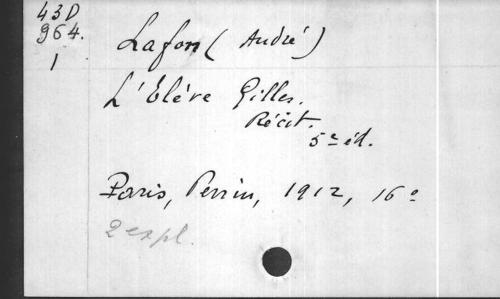 43D
964.
1
Lafon (André)
L'Elève Gilles.
Récit.
5e éd.
Paris, Perrin, 1912, 16º
2 expl.